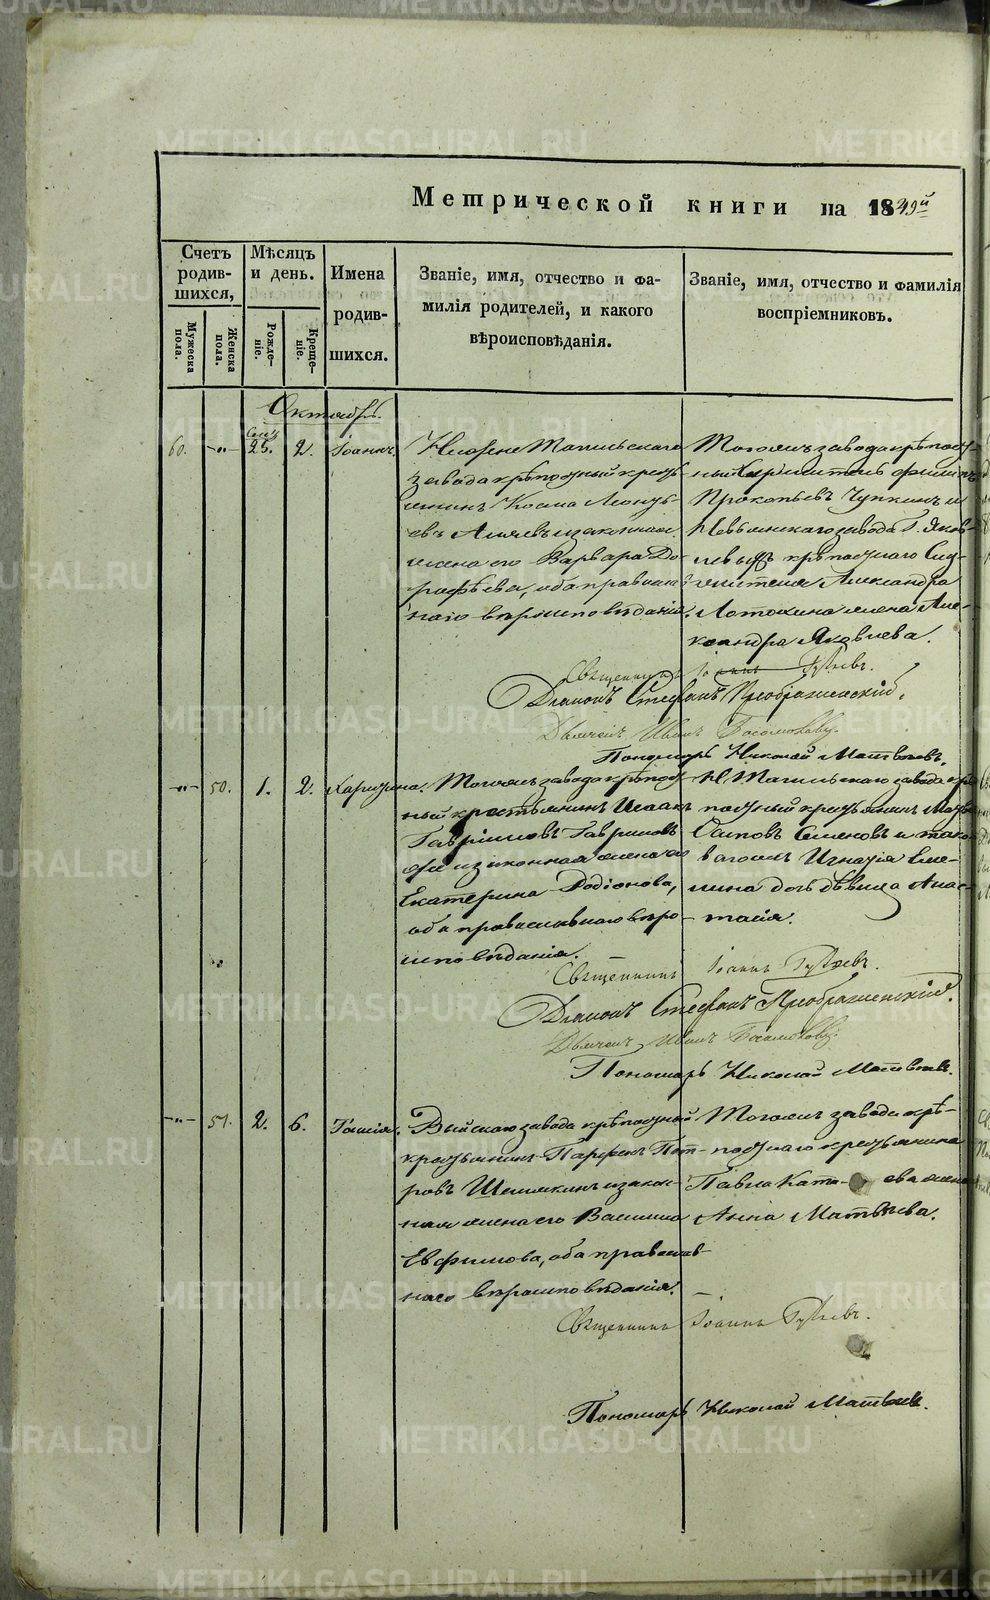 METRIKI.GASO-URAL.RU
Метрической книги на 1849й
Счетъ родив-шихся,
Мужеска пола.
Женска пола.
Мѣсяцъ и день.
Рожде-ніе.
Креще-ніе.
Имена родив-шихся.
Званіе, имя, отчество и фа-
милія родителей, и какого
вѣроисповѣданія.
Званіе, имя, отчество и фамилія
воспріемниковъ.
Октябрь.
60. -"- Сент. 25. 2. Іоаннъ.
Нижне Тагильскаго
завода крѣпостный крест-
янинъ Косма Леонть-
евъ и законная
жена его Варвара До-
рофѣева, оба православ-
наго вѣроисповѣданія.
Тогожъ завода крѣпост-
ный служитель Филипъ
Прокопьевъ Чупкинъ и
Невьянскаго завода Г. Яков-
левыхъ крѣпостнаго Слу-
жителя Александра
жена Але-
ксандра Яковлева.
Священникъ Іоаннъ
Діаконъ Стефанъ Преображенскій.
Дьячекъ Иванъ Богомоловъ.
Пономарь Николай Матвѣевъ.
-"- 50. 1. 2. Харитина.
Тогожъ завода крѣпост-
ный крестьянинъ Исаакъ
Гавриловъ Гавриловъ
и законная жена его
Екатерина Родіонова,
оба православнаго вѣро-
исповѣданія.
Н. Тагильскаго завода крѣ-
постный крестьянинъ
Осиповъ Семеновъ и тако-
ваго жъ Игнатія Еме-
лина дочь дѣвица Анас-
тасія.
Священникъ Іоаннъ
Діаконъ Стефанъ Преображенскій.
Дьячекъ Иванъ Богомоловъ.
Пономарь Николай Матвѣевъ.
-"- 51. 2. 6. Таисія.
Выйскаго завода крѣпостной
крестьянинъ Парфенъ Пет-
ровъ Шешукинъ и закон-
ная жена его Васса
Евфимова, оба православ-
наго вѣроисповѣданія.
Тогожъ завода крѣ-
постнаго крестьянина
Павла жена
Анна Матвѣева.
Священникъ Іоаннъ
Пономарь Николай Матвѣевъ.